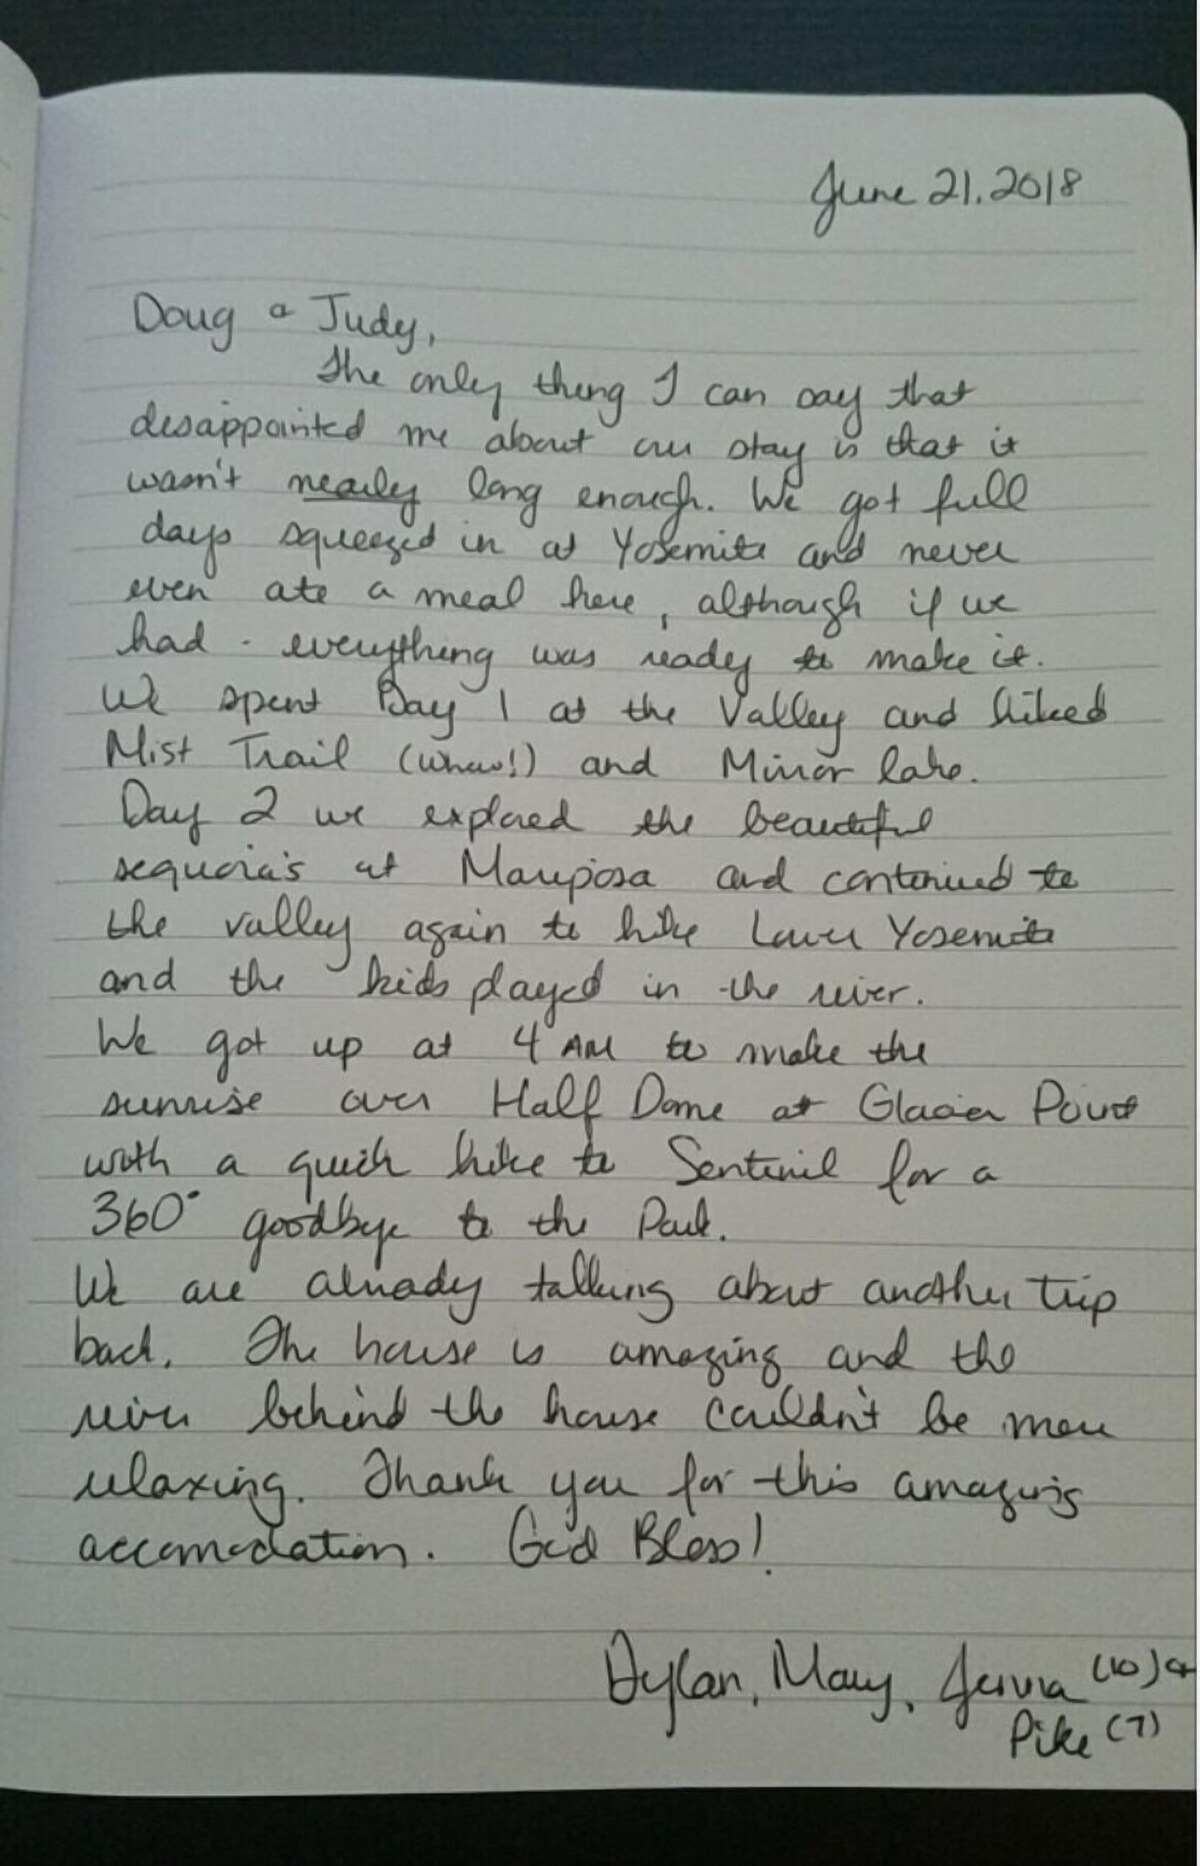 June 21. 2018
Doug & Judy,
The only thing I can say that
desappointed me about our stay is that it
wasn't nearly long enough. We got full
days squeezed in at Yosemite and never
even ate a meal here, although if we
had - everything was ready to make it.
We spent Day 1 at the Valley and hiked
Mist Trail (whew!) and Mirror lake.
Day 2 we explored the beautiful
sequoia's at Mariposa and continued to
the valley again to hike Lower Yosemite
and the kids played in the river.
We got up at 4 AM to make the
sunrise over Half Dome at Glacier Point
with a quick hike to Sentinil for a
360° goodbye to the Park.
We are already talking about another trip
back. The house is amazing and the
river behind the house couldn't be more
relaxing. Thank you for this amazing
accomodation. God Bless!
Dylan, Mary, (10) &
Pike (7)